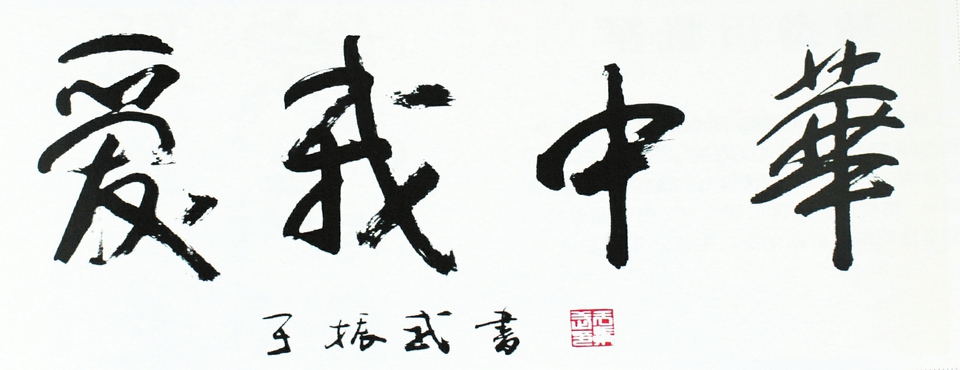 爱我中華
于振武書